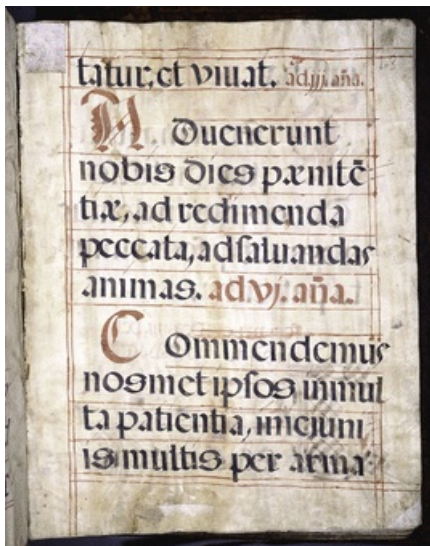 tatur, et viuat. ad iij. aña.
Aduenerunt
nobis dies pænitẽ
tiæ, ad redimenda
peccata, ad saluandas
animas. ad vj. aña.
Commendemus
nosmet ipsos in mul
ta patientia, in ieiuni
is multis per arma